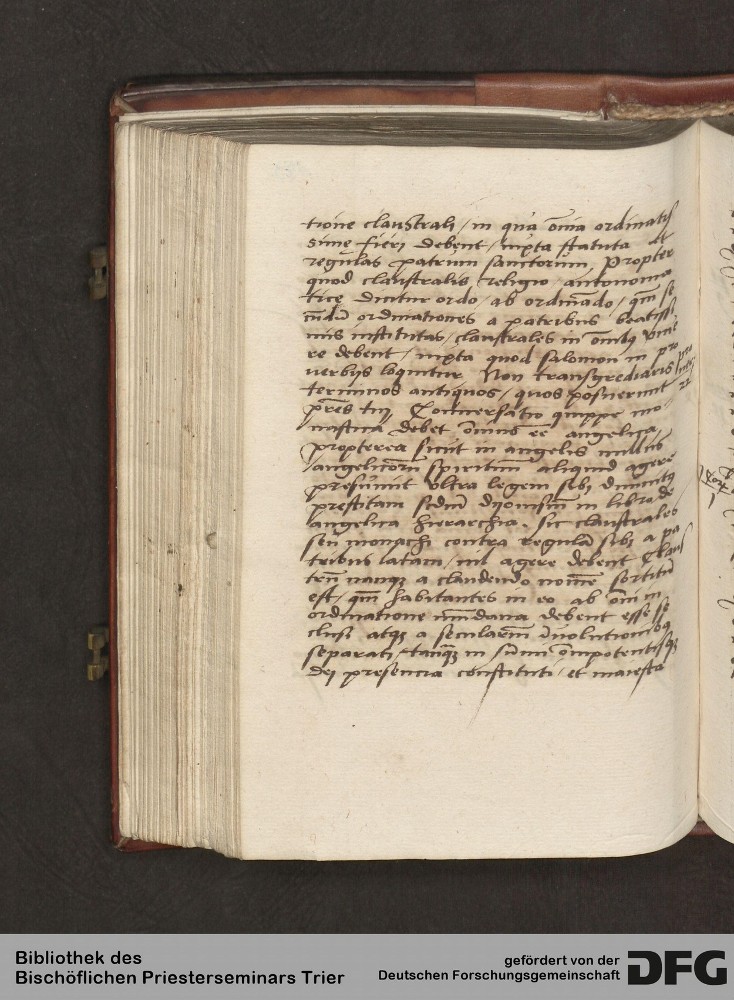 tione claustrali / in qua o͞ia ordinatis
sime fieri debent / iuxta statuta et
regulas patrum sanctorum, Propter
quod claustralis religio / antonoma
tice dicitur ordo / ab ordinādo / qm̄ se
cūdū ordinationes a patribus beatissi
mis institutas / claustrales in o͞ibꝫ viue
re debent / iuxta quod salomon in pro
verbijs loquitur Non transgrediaris
terminos antiquos / quos posuerunt
pr̄es tui, Conuersatio quippe mo
nastica debet o͞ino e͞e angelica,
propterea sicut in angelis nullus
angelicorū spirituum aliquid agere
presumit vltra legem sibi diuinitꝰ
prestitam scd̄m dyonisiū in libro de
angelica hierarchia. sic claustrales
seu monachi contra regulā sibi a pa
tribus latam / nil agere debent Claus
trū nanqꝫ a claudendo nomē sortitur
est / qm̄ habitantes in eo ab o͞i in
ordinatione mundana debent esse se
clusi atqꝫ a seculariū inuolutionibꝫ
separati / tanqꝫ in summi o͞ipotentisqꝫ
dei presencia constituti / et maiesta
pro
22
Bibliothek des
Bischöflichen Priesterseminars Trier
gefördert von der
Deutschen Forschungsgemeinschaft
DFG